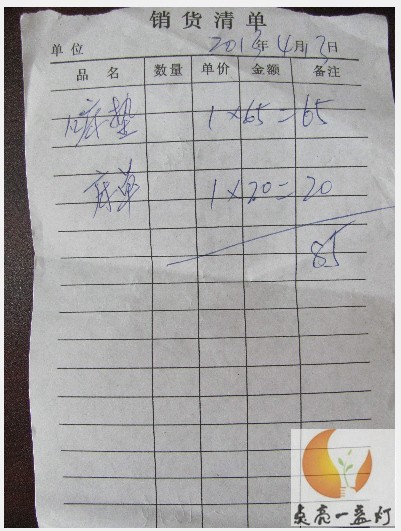 销货清单
单位 2013年4月13日
品名 数量 单价 金额 备注
床垫 1×65=65
床单 1×20=20
85
点亮一盏灯